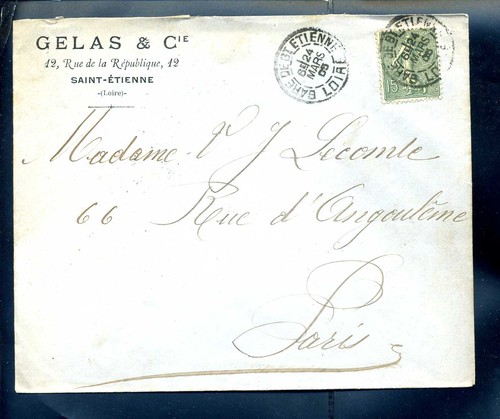 GELAS & CIE
12, Rue de la République, 12
SAINT-ÉTIENNE
-(Loire)-
GARE DE ST ETIENNE
24
MARS
05
LOIRE
15
Madame V J Lecomte
66 Rue d'Angoulême
Paris